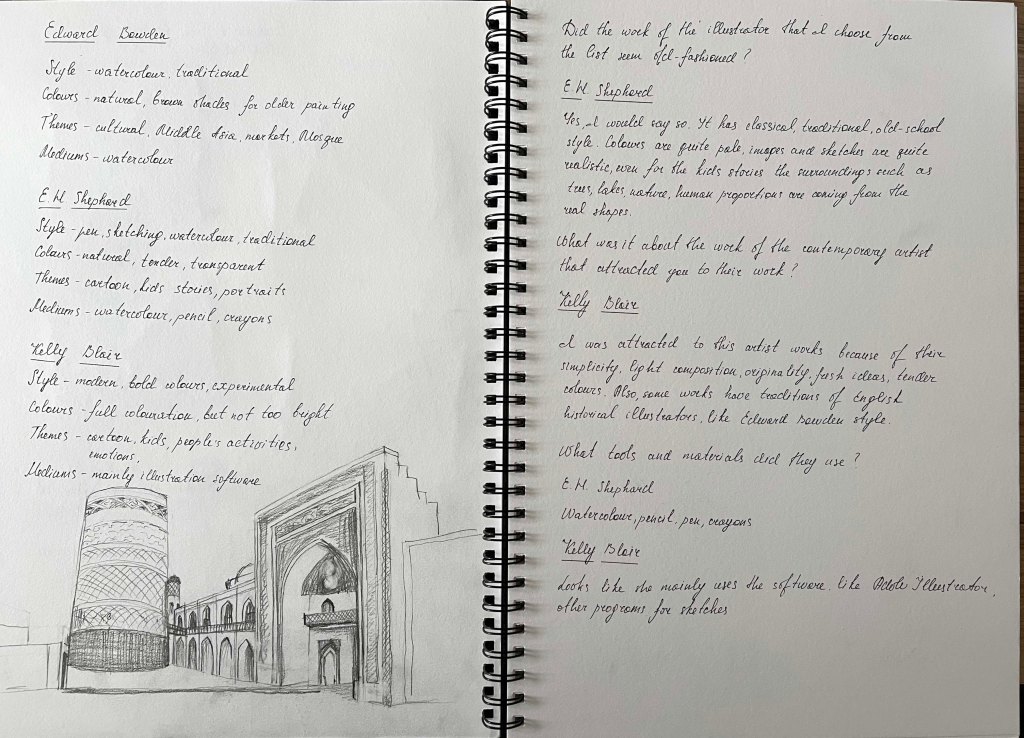 Edward Bawden
Style - watercolour, traditional
Colours - natural, brown shades for older painting
Themes - cultural, Middle Asia, markets, Mosque
Mediums - watercolour
E. H. Shephard
Style - pen, sketching, watercolour, traditional
Colours - natural, tender, transparent
Themes - cartoon, kids stories, portraits
Mediums - watercolour, pencil, crayons
Kelly Blair
Style - modern, bold colours, experimental
Colours - full colouration, but not too bright
Themes - cartoon, kids, people's activities,
emotions,
Mediums - mainly illustration software
Did the work of the illustrator that I choose from
the list seem old-fashioned?
E. H. Shephard
Yes, I would say so. It has classical, traditional, old-school
style. Colours are quite pale, images and sketches are quite
realistic, even for the kids stories the surroundings such as
trees, lakes, nature, human proportions are coming from the
real shapes.
What was it about the work of the contemporary artist
that attracted you to their work?
Kelly Blair
I was attracted to this artist works because of their
simplicity, light composition, originality, fresh ideas, tender
colours. Also, some works have traditions of English
historical illustrators, like Edward Bawden style.
What tools and materials did they use?
E. H. Shephard
Watercolour, pencil, pen, crayons
Kelly Blair
Looks like she mainly uses the software, like Adobe Illustrator,
other programs for sketches